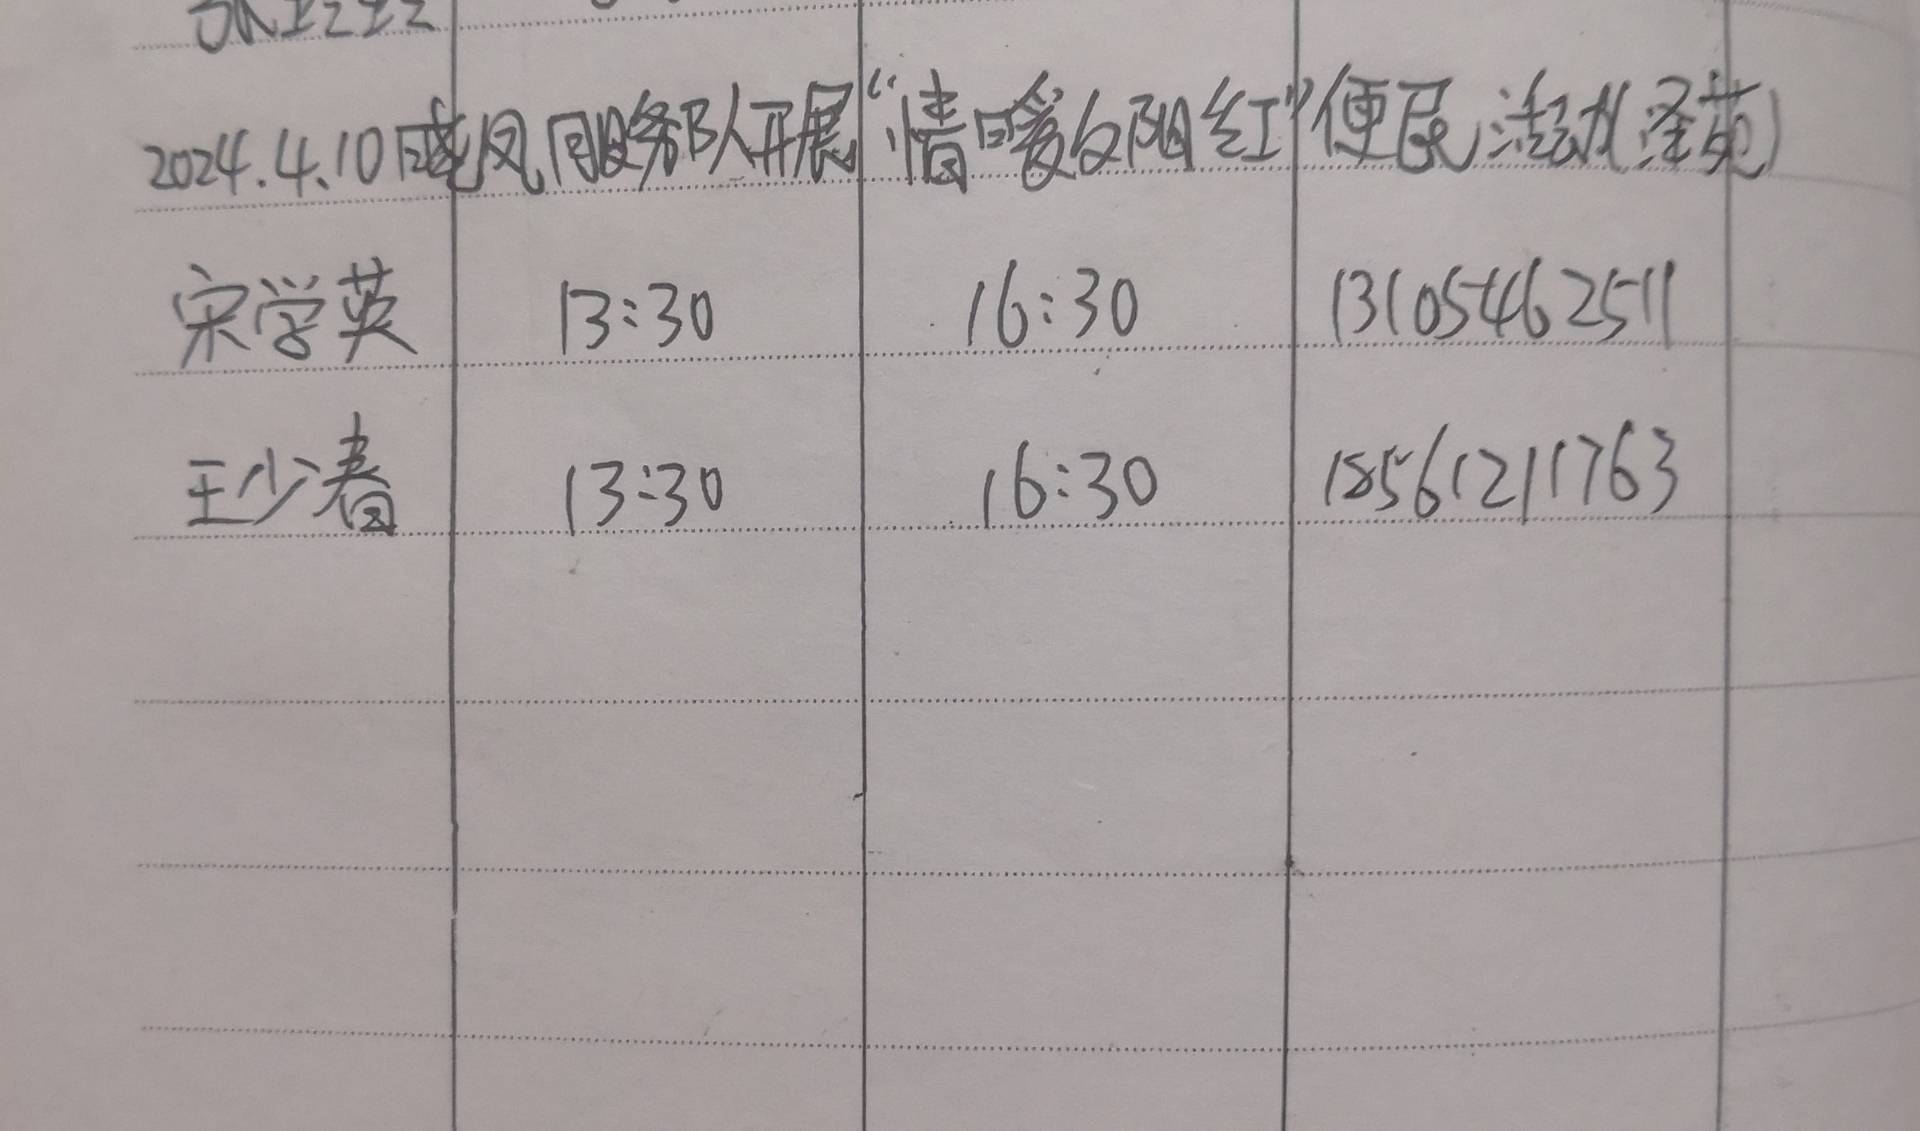 2024.4.10 凤服务队开展“情暖夕阳红”便民活动(泽苑)
宋学英 13:30 16:30 13105462511
王少春 13:30 16:30 18561211763